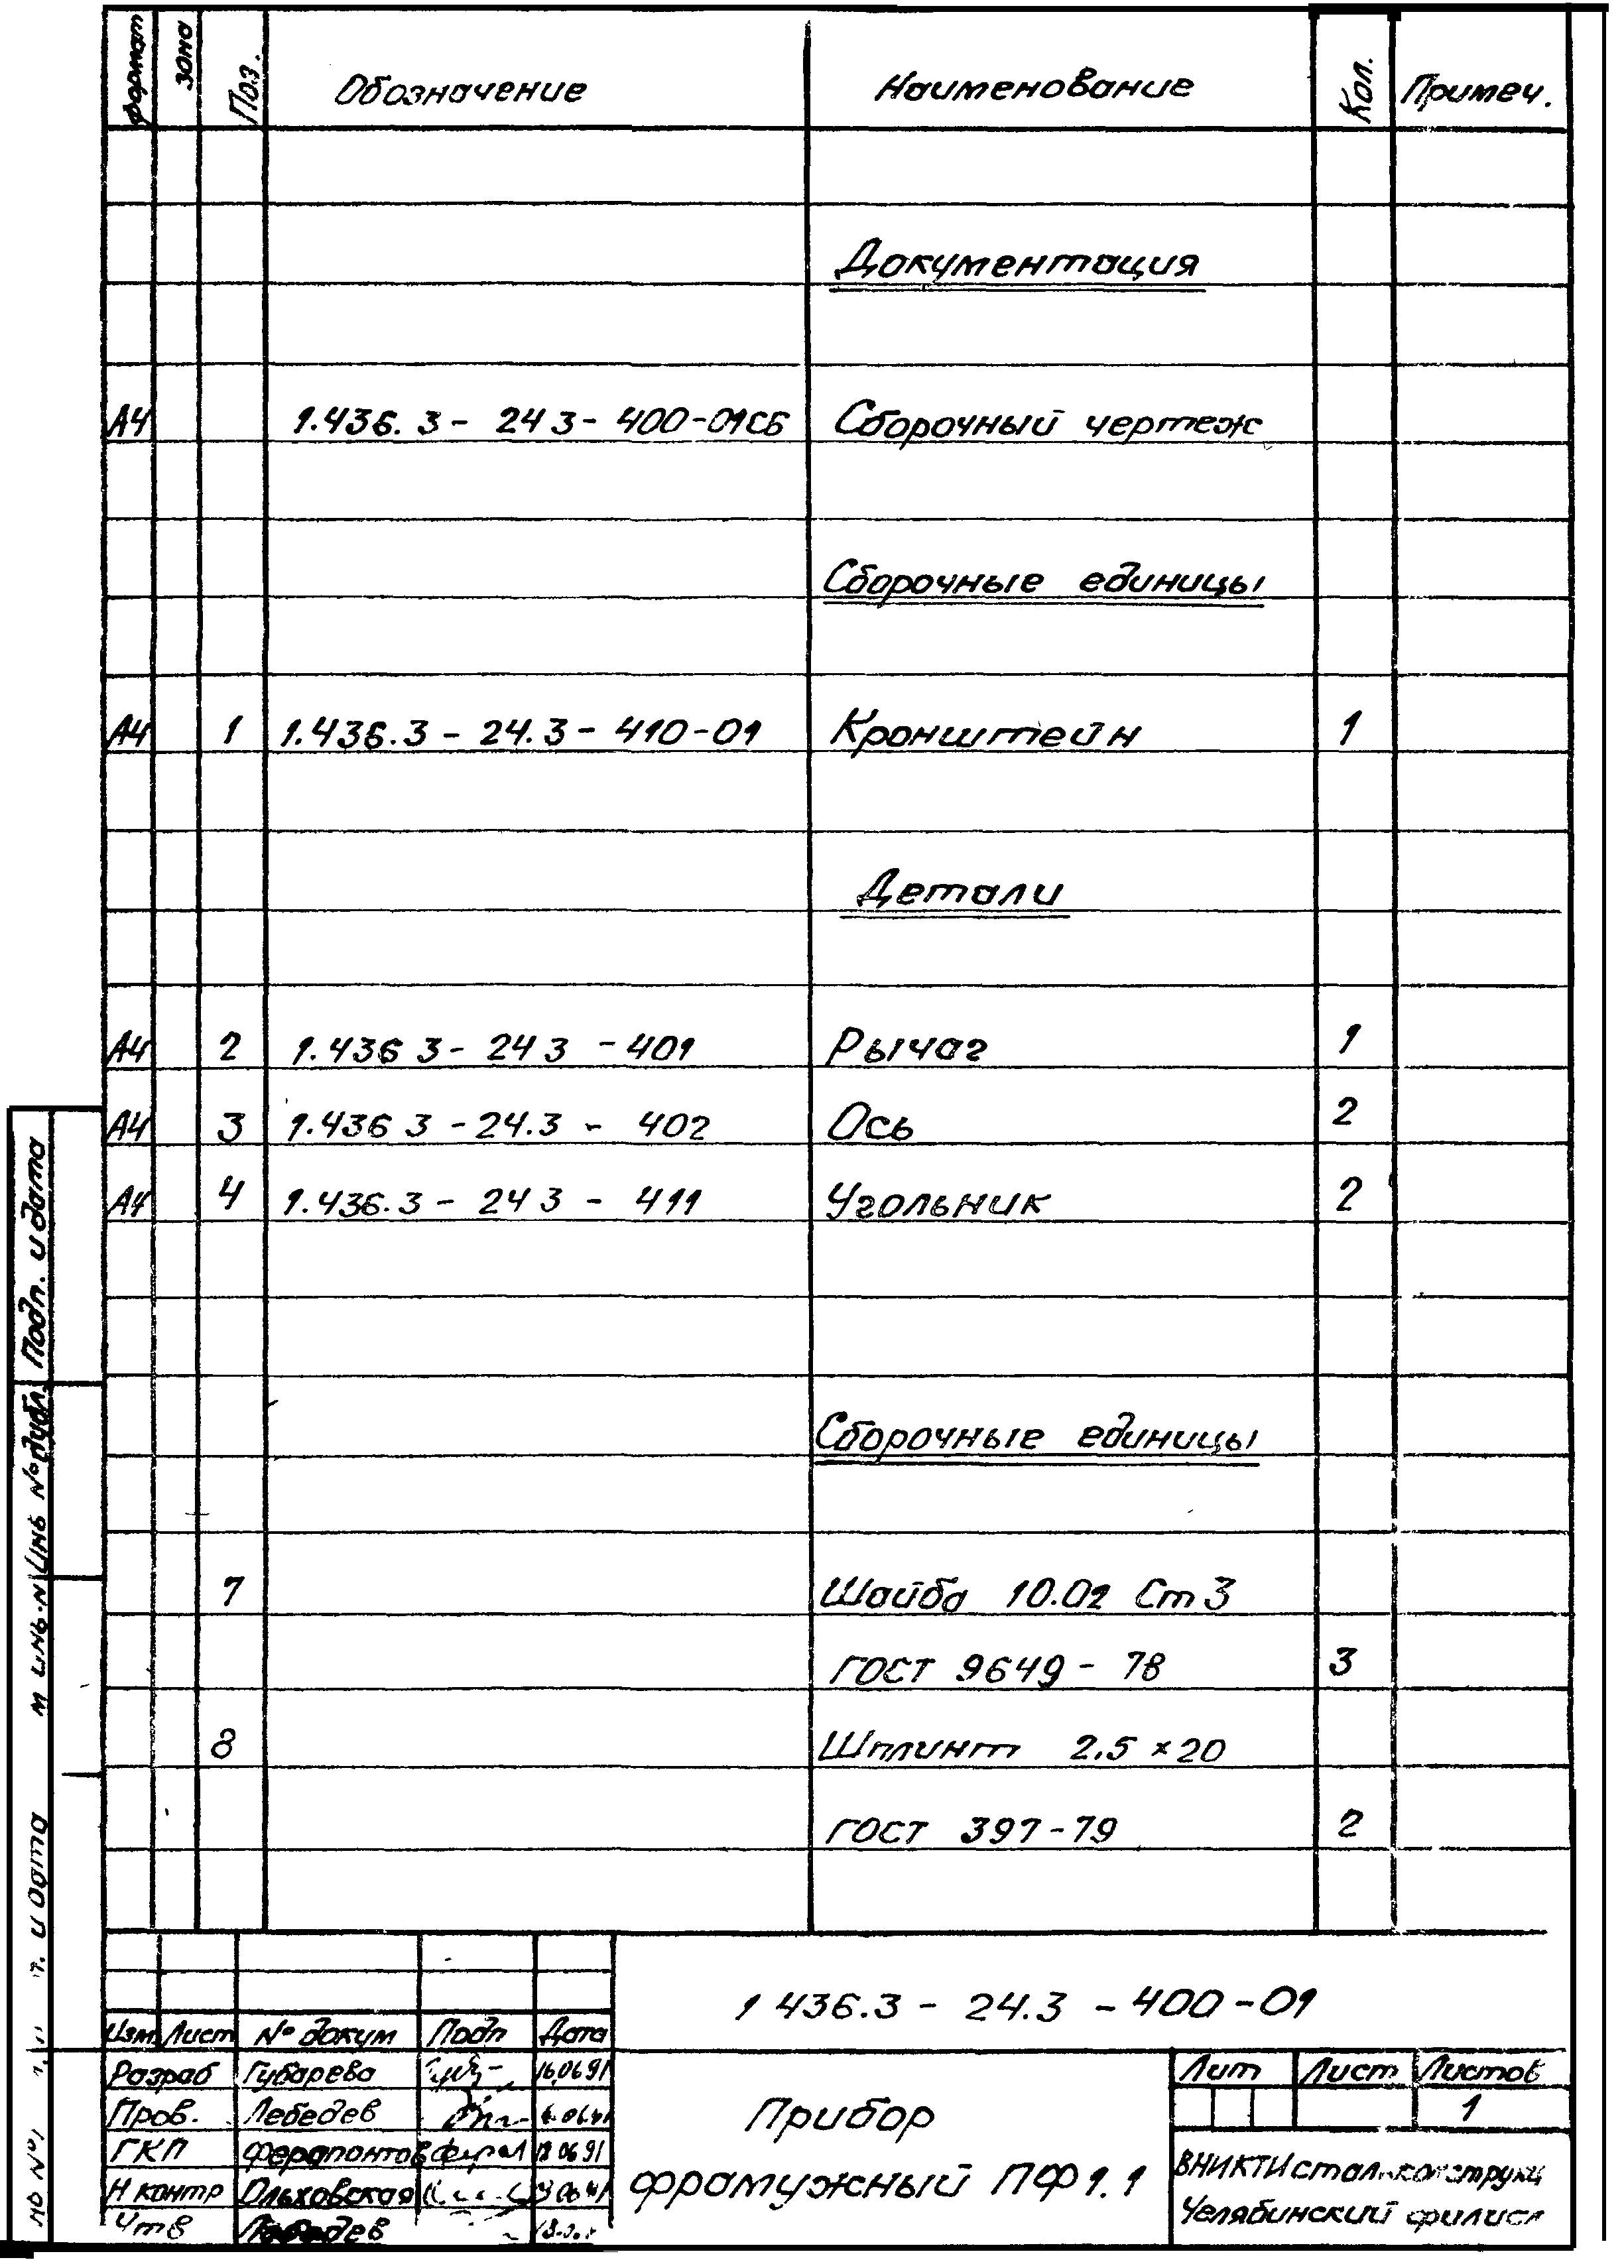 Формат Зона Поз. Обозначение Наименование Кол. Примеч.
Документация
А4 1.436. 3 - 24 3 - 400-01СБ Сборочный чертеж
Сборочные единицы
А4 1 1.436.3 - 24.3 - 410-01 Кронштейн 1
Детали
А4 2 1.436 3 - 24 3 - 401 Рычаг 1
А4 3 1.436 3 - 24.3 - 402 Ось 2
А4 4 1.436.3 - 24 3 - 411 Угольник 2
Сборочные единицы
7 Шайба 10.02 Ст 3
ГОСТ 9649 - 78 3
8 Шплинт 2.5 × 20
ГОСТ 397-79 2
Подп. и дата
Инв № дубл.
и дата
1 436.3 - 24.3 - 400-01
Изм. Лист № докум Подп Дата
Разраб Губарева 16.06.91
Пров. Лебедев
ГКП Ферапонтов 06 91
Н контр Ольховская
Утв Лебедев
Прибор
фрамужный ПФ 1.1
Лит Лист Листов
1
ВНИКТИстальконструкц
Челябинский филиал